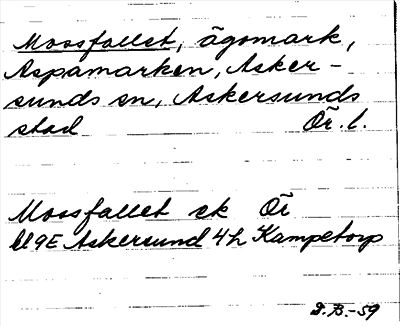 Mossfallet, ägomark,
Aspamarken, Asker-
sunds sn, Askersunds
stad Ör. l.
Mossfallet ek Ör
9E Askersund 4h Kampetorp
D.B.-59